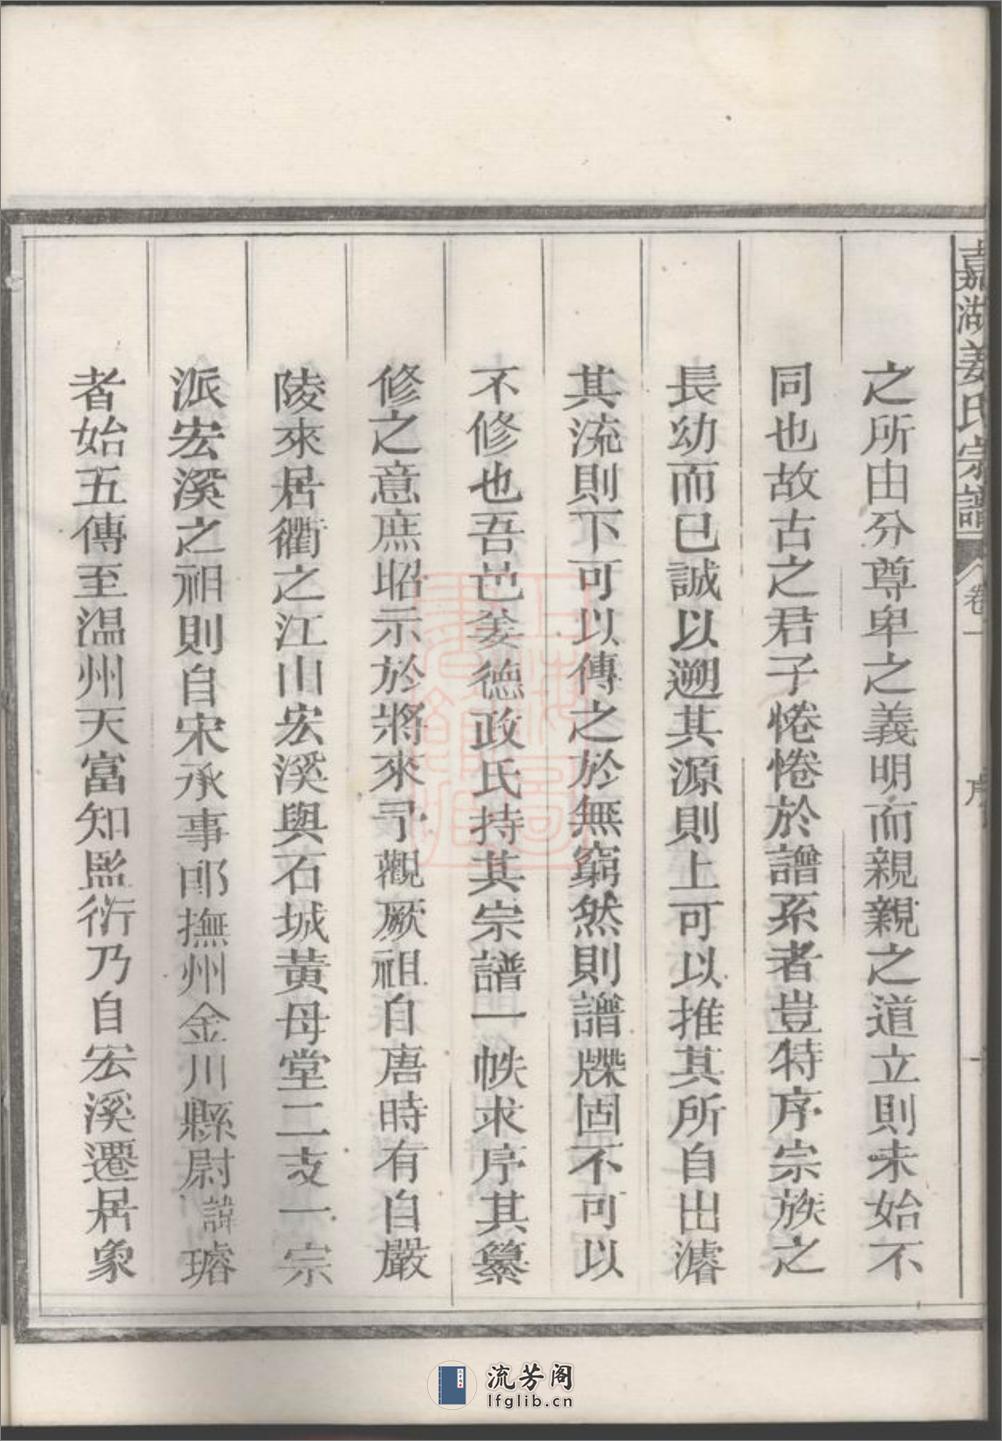 嘉湖姜氏宗譜 卷一 序 一
之所由分尊卑之義明而親親之道立則未始不
同也故古之君子惓惓於譜系者豈特序宗族之
長幼而已誠以遡其源則上可以推其所自出濬
其流則下可以傳之於無窮然則譜牒固不可以
不修也吾邑姜德政氏持其宗譜一帙求序其纂
修之意庶昭示於將來予觀厥祖自唐時有自嚴
陵來居衢之江山宏溪與石城黃母堂二支一宗
派宏溪之祖則自宋承事郎撫州金川縣尉諱璿
者始五傳至溫州天富知監衍乃自宏溪遷居象
流芳阁
lfglib.cn